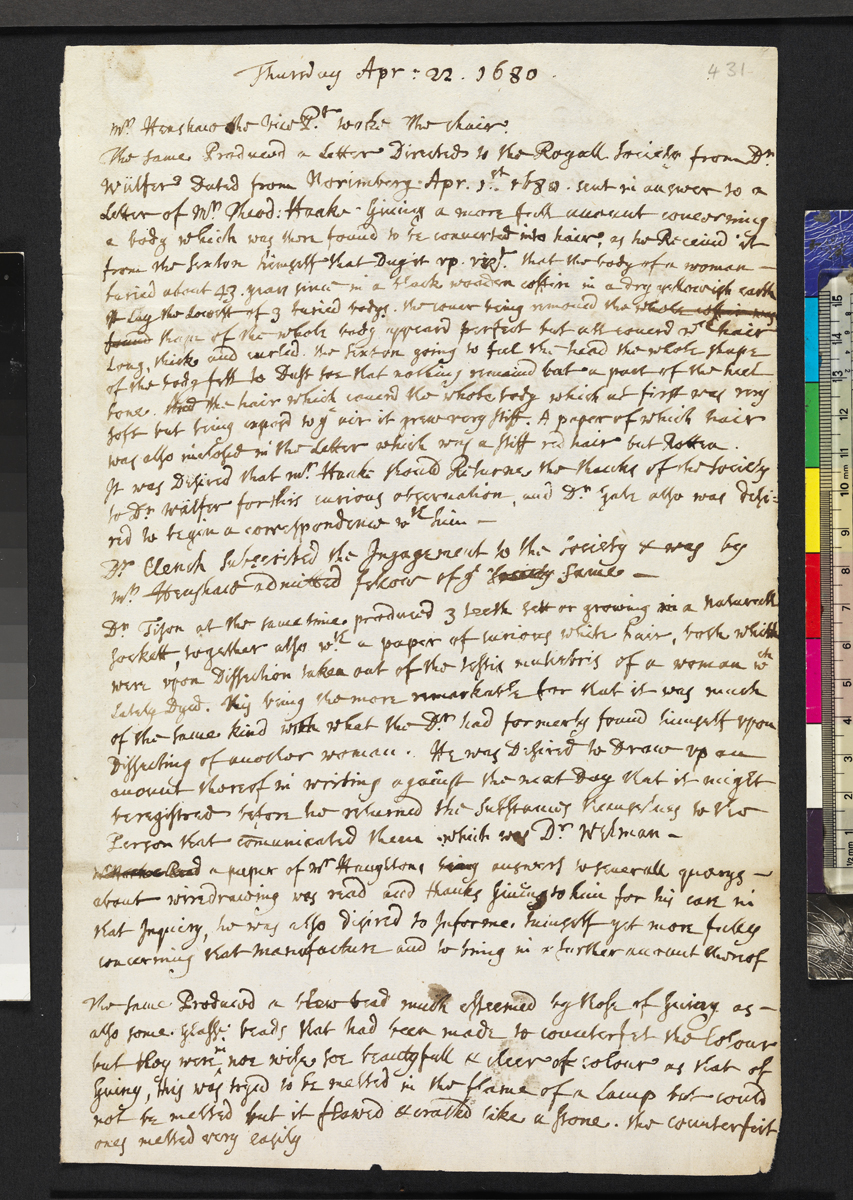 431
Thursday Apr: 22. 1680.
Mr Henshaw the Vice Pt. tooke the chair.
The same Produced a Letter Directed to the Royall Society from Dr
Wülfer Dated from Norimberg Apr. 1st. 1680. sent in answer to a
Letter of Mr Theod: Haake Giving a more full account concerning
a body which was there found to be converted into hair, as he Received it
from the Sexton himself that Dug it up. vizt. that the body of a woman
buried about 43 years since in a black wooden coffin in a dry yelowish earth
lay the Lowest of 3 buried bodys. the cover being removed the whole coffin was
found shape of the whole body appeard perfect but all coverd wth hair
Long, thick and curled. the Sexton going to feel the head the whole shape
of the body fell to Dust soe that nothing remaind but a part of the heel
bone. And the hair which coverd the whole body which at first was very
soft but being exposd to ye air it grew very stiff. A paper of which hair
was also inclosed in the Letter which was a stiff red hair but Rotten.
It was Desired that Mr Haak should Returne the thanks of the Society
to Dr Wülfer for this curious observation, and Dr Gale also was desi=
red to begin a correspondence wth him —
Dr Clench Subscribed the Ingagement to the Society & was by
Mr Henshaw admitted fellow of ye Society same —
Dr Tison at the same time produced 3 teeth sett or growing in a Naturall
sockett, together also wth a paper of curious white hair, both which
were upon Dissection taken out of the testis muliebris of a woman wch
Lately Dyed. this being the more remarkable for that it was much
of the same kind with what the Dr had formerly found himself upon
Dissecting of another woman. He was Desired to Draw up an
account thereof in writing against the next Day that it might
be registred before he returned the Substances themselves to the
Person that comunicated them which was Dr Welman —
a paper of Mr Haughtons being answers to severall querys —
about wiredrawing was read and thanks Giving to him for his care in
that Inquiry, he was also desired to Informe himself yet more fully
concerning that manufacture and to bring in a further account thereof
The same Produced a blew bead much esteemed by those of Guiny as —
also some glasse beads that had been made to counterfet the Colour
but they were noe wise soe beautyfull & cleer of colour as that of
Guiny, this was tryed to be melted in the flame of a Lamp but could
not be melted but it flawed & cracked like a stone. the counterfeit
ones melted very easily